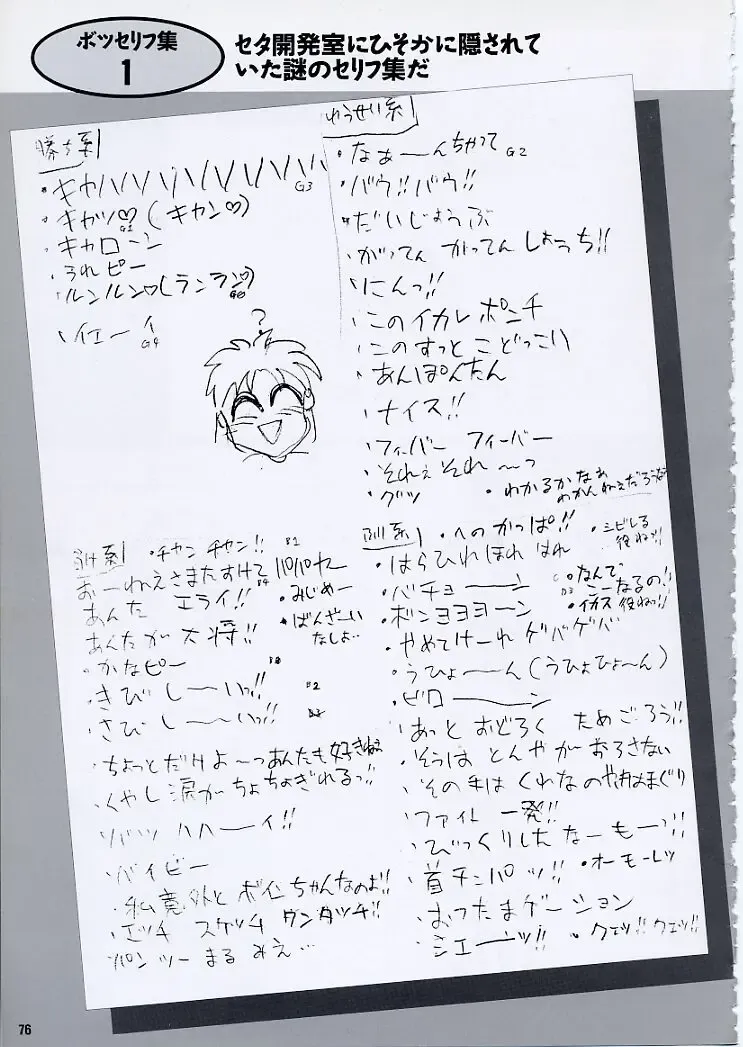 ボツセリフ集
1
セタ開発室にひそかに隠されて
いた謎のセリフ集だ
勝ち系
・キャハハハハハハハハ G3
・キャッ♡(キャン♡)
・キャローン
・うれピー
・ルンルン♡(ランラン♡)
・イエーイ G4
?
ゆうせい系
・なぁーんちゃって G2
・バウ!!バウ!!
・だいじょうぶ
・がってん がってん しょうち!!
・にんっ!!
・このイカレ ポンチ
・このすっとこどっこい
・あんぽんたん
・ナイス!!
・フィーバー フィーバー
・それぇ それ〜っ
・グッ
・わかるかなぁ
わかんねぇだろうなぁ
負け系
・チャン チャン!! B1
おーねえさまたすけて B4
あんた エライ!!
・みじめー
あんたが大将!!
・ばんざーい
なしよ…
・かなピー
・きびしーいっ!! B2
・さびしーいっ!!
・ちょっとだけよ〜っあんたも好きねぇ
・くやし涙がちょちょぎれるっ!!
・バイビー
・私意外とボインちゃんなのよ!!
・エッチ スケッチ ワンタッチ!!
パンツーまるみえ…
・へのかっぱ!!
・シビレる
役ね!!
・はらひれほれ はれ
・バチョーン
・なんで
こーなるの!!
・ボンヨヨヨーン
・イカス 役ねっ!!
・やめてけーれ ゲバゲバ
・うひょ〜ん(うひょひょ〜ん)
・ビローーン
・あっと おどろく ためごろう!!
・そうは とんやが おろさない
・その手は くわなの 焼はまぐり
・ファイト 一発!!
・びっくりしたなーもーっ!!
・首チョンパッ!!
・オーモーレツ
・おったまゲーション
・シェーッ!!
・クェッ!! クェッ!!
76